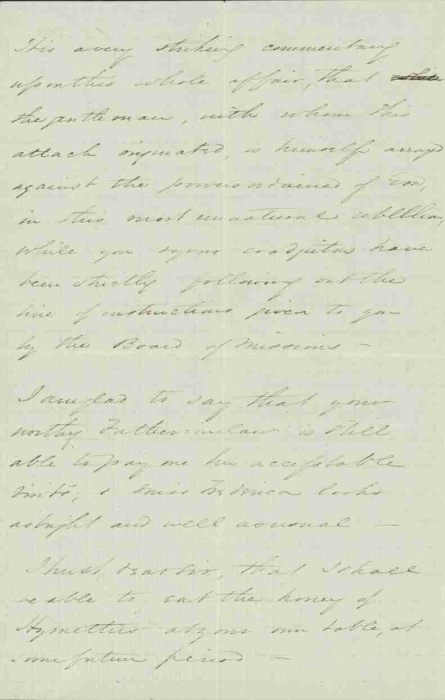 It is a very striking commentary
upon this whole affair, that
the gentleman, with whom this
attack originated, is himself arrayed
against the powers ordained of God,
in this most unnatural rebellion,
while you & your coadjutors have
been strictly following out the
line of instructions given to you
by the Board of Missions —
I am glad to say that your
worthy Father in law is still
able to pay me his acceptable
visits, & Miss Frederica looks
as bright and well as usual —
I trust, dear Sir, that I shall
be able to eat the honey of
Hymettus at your own table, at
some future period —